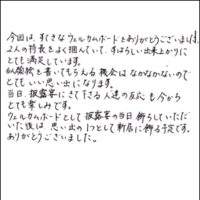 今回は、すてきなウェルカムボードをありがとうございました。
2人の特長をよく掴んでいて、すばらしい出来上がりに
とても満足しています。
似顔絵を書いてもらえる機会はなかなかないので
とてもいい思い出になります。
当日、披露宴にきて下さる人達の反応も今から
とても楽しみです。
ウェルカムボードとして披露宴の当日飾らしていただ
いた後は、思い出の1つとして新居に飾る予定です。
ありがとうございました。